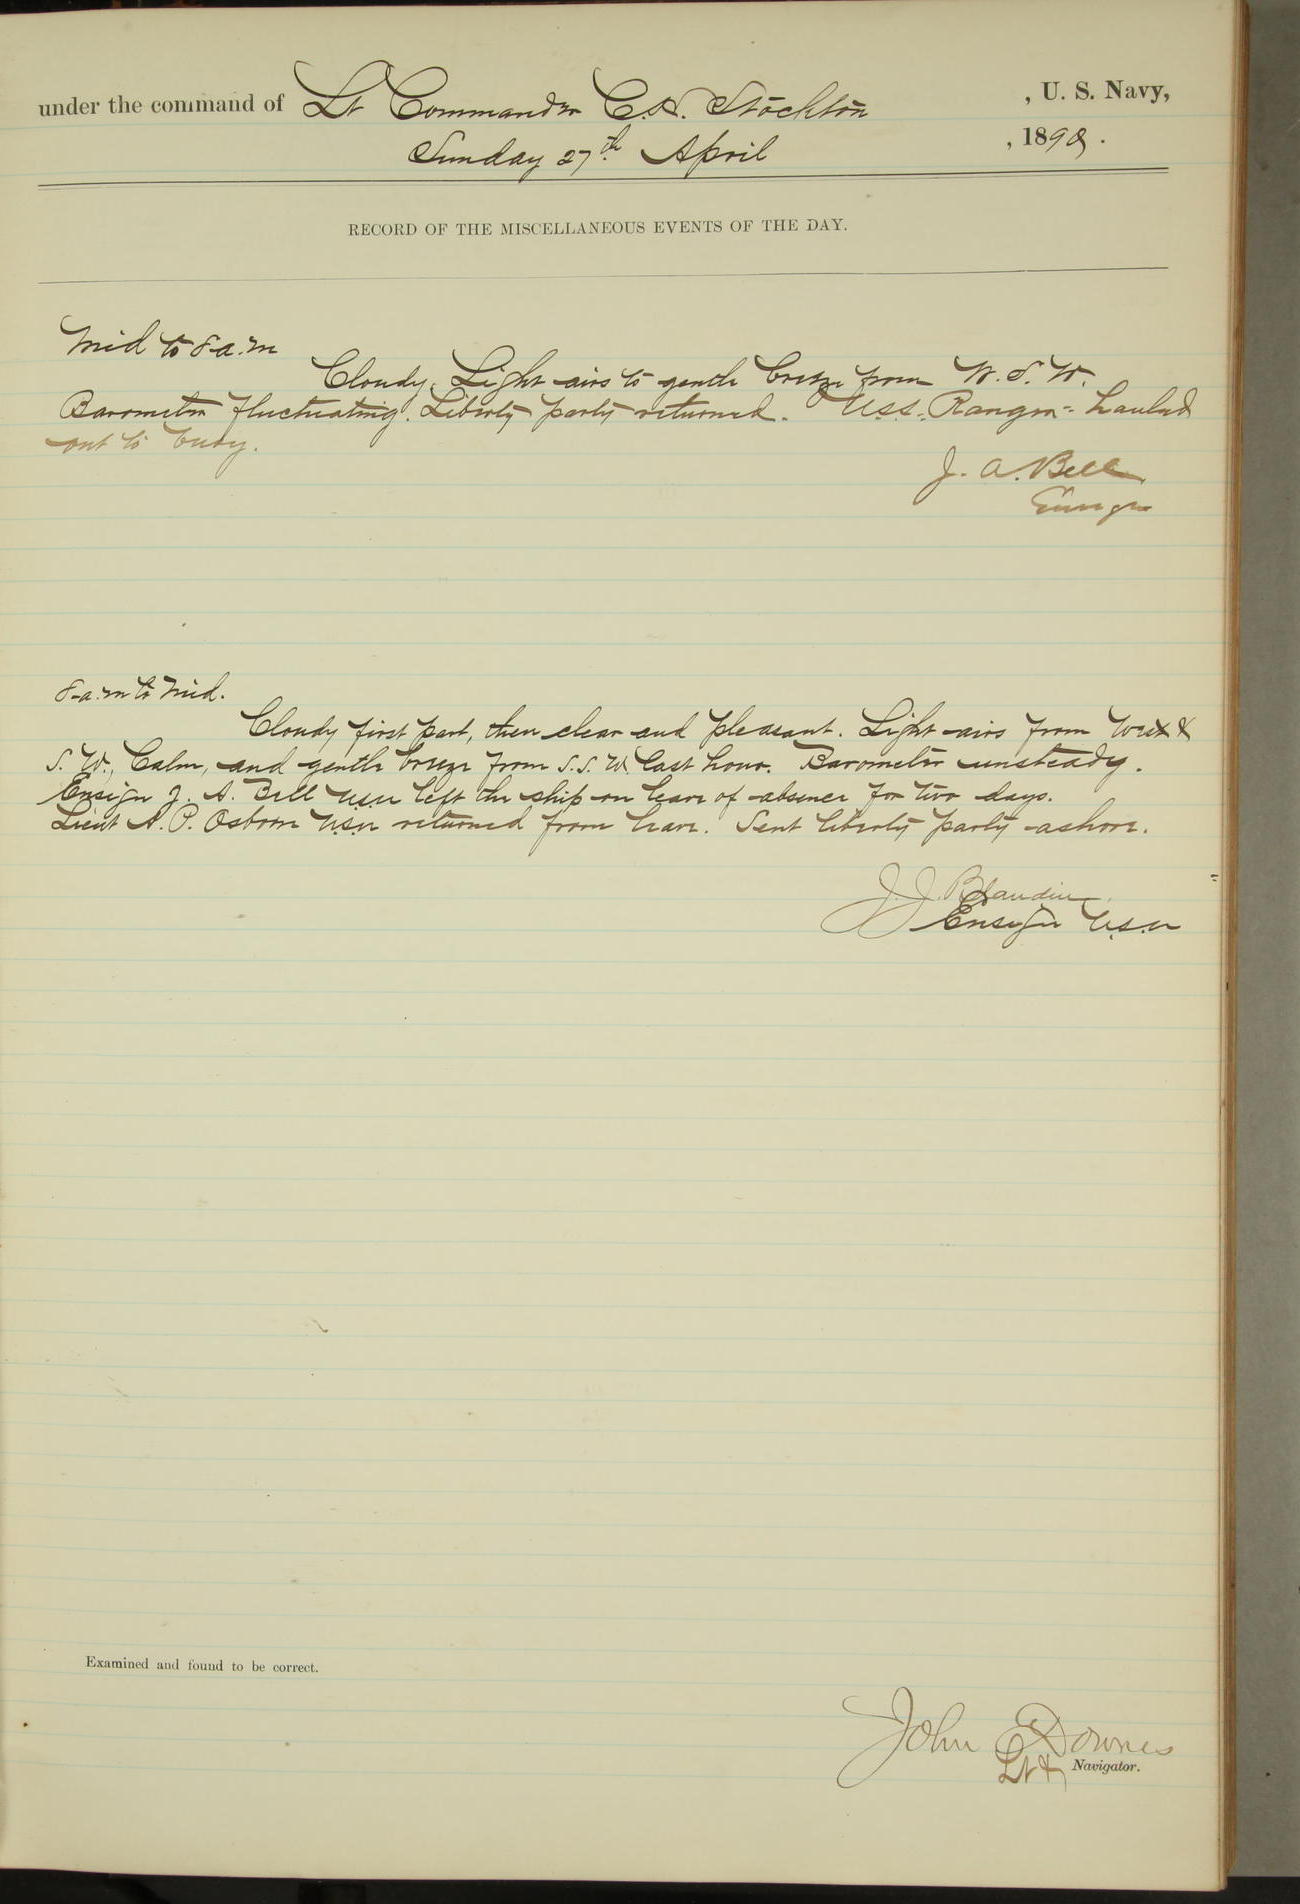 under the command of Lt Commander C. H. Stockton , U. S. Navy,
Sunday 27th April , 1890.
RECORD OF THE MISCELLANEOUS EVENTS OF THE DAY.
Mid to 8 a.m
Cloudy. Light airs to gentle breeze from W. S. W.
Barometer fluctuating. Liberty party returned. U.S.S. Ranger hauled
out to buoy.
J. A. Bell
8 a.m to Mid.
Cloudy first part, then clear and pleasant. Light airs from West &
S. W., Calm, and gentle breeze from S. S. W. last hour. Barometer unsteady.
Ensign J. A. Bell U.S.N left the ship on leave of absence for two days.
Lieut A. P. Osborn U.S.N returned from leave. Sent liberty party ashore.
J. J. Blandin
Ensign U.S.N
Examined and found to be correct.
John Downes
Lt & Navigator.